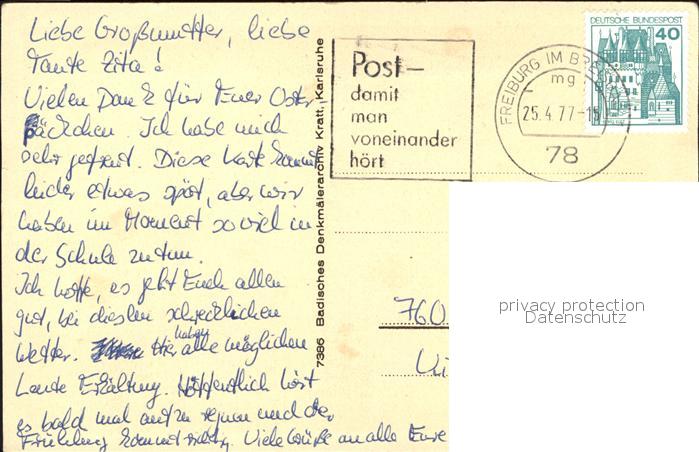 Liebe Großmutter, liebe
Tante Zita!
Vielen Dank für Euer Oster
päckchen. Ich habe mich
sehr gefreut. Diese Karte kommt
leider etwas spät, aber wir
haben im Moment so viel in
der Schule zu tun.
Ich hoffe, es geht Euch allen
gut, bei diesem schrecklichen
Wetter. Hier haben alle möglichen
Leute Erkältung. Hoffentlich hört
es bald mal auf zu regnen und der
Frühling kommt richtig. Viele Grüße an alle Eure
7386 Badisches Denkmälerarchiv Kratt, Karlsruhe
Post–
damit
man
voneinander
hört
FREIBURG IM BREISGAU
mg
25.4.77-15
78
DEUTSCHE BUNDESPOST
40
760
privacy protection
Datenschutz